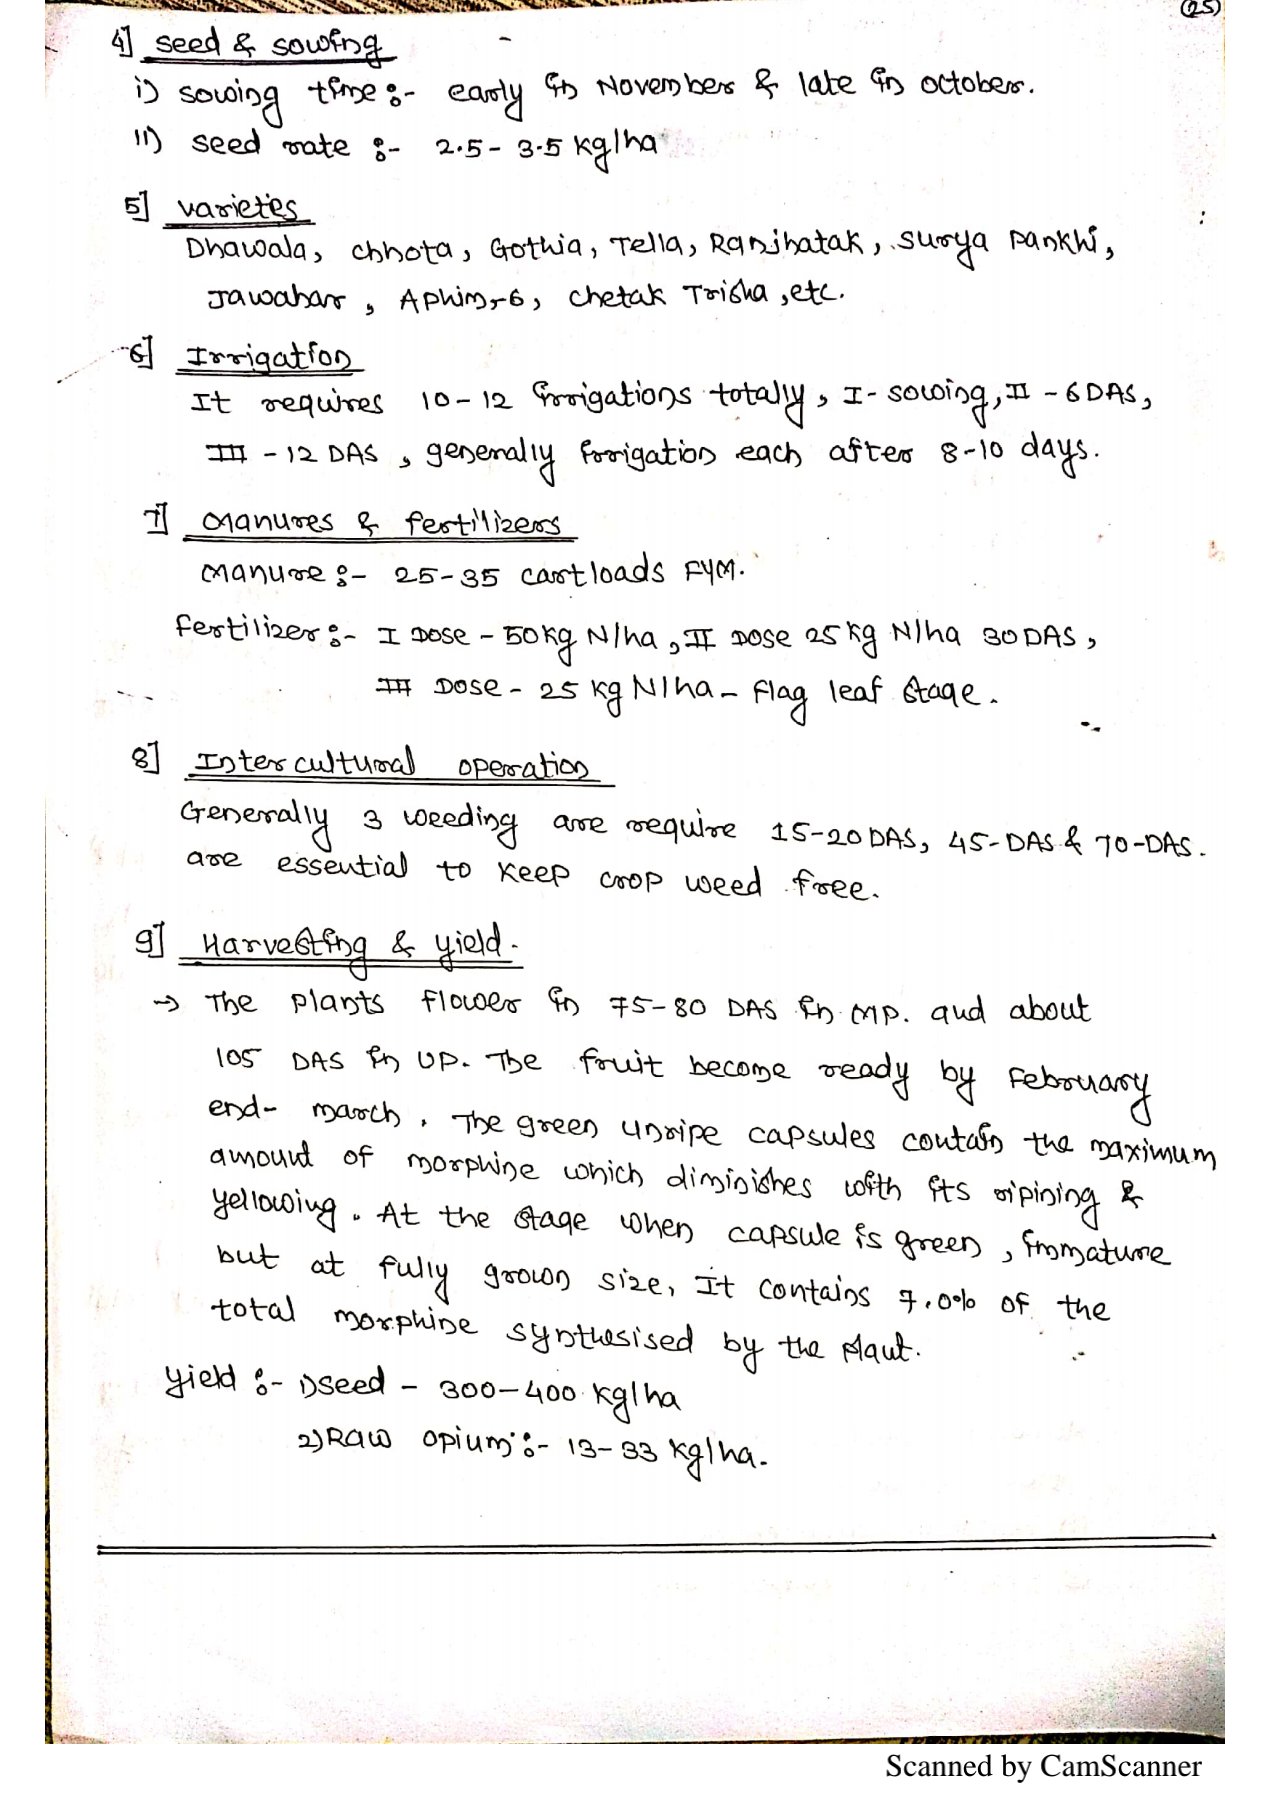 (25)
4] seed & sowing
i) sowing time :- early in November & late in october.
ii) seed rate :- 2.5 - 3.5 kg/ha
5] varieties
Dhawala, chhota, Gothia, Tella, Ranjhatak, Surya Pankhi,
Jawahar, Aphim-6, chetak Trisha, etc.
6] Irrigation
It requires 10-12 irrigations totally, I- sowing, II - 6 DAS,
III - 12 DAS, generally irrigation each after 8-10 days.
7] Manures & fertilizers
Manure :- 25-35 cartloads FYM.
fertilizer :- I Dose - 50 kg N/ha, II Dose 25 kg N/ha 30 DAS,
III Dose - 25 kg N/ha - Flag leaf stage.
8] Inter cultural operation
Generally 3 weeding are require 15-20 DAS, 45-DAS & 70-DAS.
are essential to keep crop weed free.
9] Harvesting & yield.
→ The plants flower in 75-80 DAS in MP. and about
105 DAS in UP. The fruit become ready by February
end- march. The green unripe capsules contain the maximum
amount of morphine which diminishes with its ripining &
yellowing. At the stage when capsule is green, immature
but at fully grown size, It contains 7.0% of the
total morphine synthesised by the plant.
Yield :- 1) Seed - 300-400 kg/ha
2) Raw opium :- 13-33 kg/ha.
Scanned by CamScanner